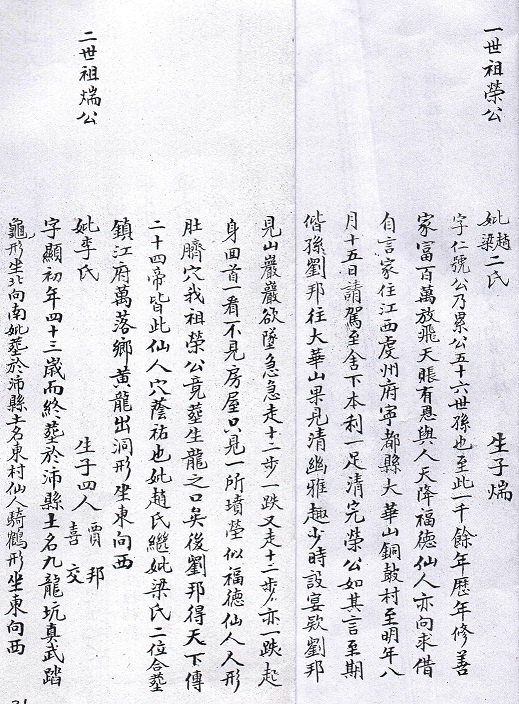 一世祖榮公
妣趙梁二氏　生子煓
字仁號公乃累公五十六世孫也至此一千餘年歷年修善
家富百萬放飛天賬有恩與人天降福德仙人亦向求借
自言家住江西虔州府寧都縣大華山銅鼓村至明年八
月十五日請駕至舍下本利一足清完榮公如其言至期
偕孫劉邦往大華山果見清幽雅趣少時設宴欵劉邦
見山巖巖欲墜急急走十二步一跌又走十二步亦一跌起
身回首一看不見房屋只見一所墳塋似福德仙人人形
肚臍穴我祖榮公竟塟生龍之口矣後劉邦得天下傳
二十四帝皆此仙人穴蔭祐也妣趙氏繼妣梁氏二位合塟
鎮江府萬落鄉黄龍出洞形坐東向西
二世祖煓公
妣李氏　生子四人　賈邦喜交
字顯初年四十三歲而終塟於沛縣土名九龍坑真武踏
龜形坐北向南妣塟於沛縣土名東村仙人騎鶴形坐東向西